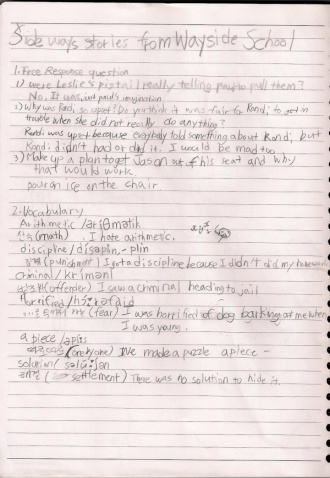 Side ways stories from Wayside School
1. Free Response question
1) were Leslie's pigtail really telling paul to pull them?
No. It was, just paul's imagination
2) Why was Rondi, so upset? Do you think it was fair to Rondi, to get in
trouble when she did not really do anything?
Rondi was upset because everybody told something about Rondi, but
Rondi didn't had or did it. I would be mad too.
3) Make up a plan to get Jason out of his seat and why
that would work.
pour an ice on the chair.
2. Vocabulary
Arithmetic /əriθmətik
산수(math) I hate arithmetic.
discipline / disəplin, - plin
(punishment) I got a discipline because I didn't did my homework
criminal / kriminl
(offender) I saw a criminal heading to jail
Horrified /
(fear) I was horrified of dog barking at me when
I was young.
a piece /əpi:s
(one by one) I've made a puzzle a piece -
solution/ səlú:ʃən
해결 ( settlement) There was no solution to hide it.